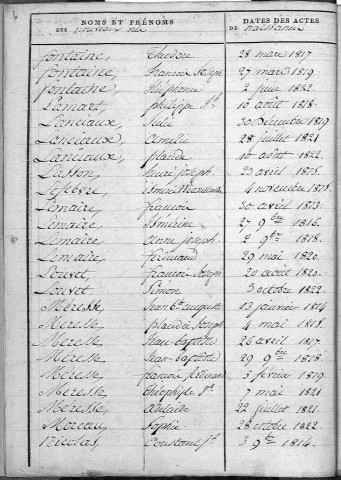 NOMS ET PRÉNOMS DATES DES ACTES
DES nouveaux nés DE naissance
fontaine, 28 mars 1817
fontaine, françois Joseph 27 mars 1819
fontaine, Alphonse 2 juin 1822
Lemart, philippe Jh 10 août 1818
Lanciaux, Jule 30 Décembre 1819
Lanciaux, Amélie 28 juillet 1821
Lanciaux, placide 10 août 1822
Lasson, henri Joseph 23 avril 1815
Lefebvre, 4 novembre 1818
Lemaire, françois 30 avril 1813
Lemaire, Ismérine 27 9bre 1816
Lemaire, anne Joseph 2 9bre 1818
Lemaire, ferdinand 29 mai 1820
Louvet, françois Joseph 20 août 1820
Louvet, Simon 3 octobre 1822
Meresse, Jean bte auguste 13 janvier 1814
Meresse, placide Joseph 4 mai 1815
Meresse, Jean-baptiste 26 avril 1817
Meresse, Jean-baptiste 29 9bre 1818
Meresse, françois ferdinand 3 février 1819
Meresse, théophile 7 mai 1821
Meresse, adelaide 22 juillet 1821
Moreau, Sophie 28 octobre 1822
Nicolas, Constant Jh 3 9bre 1814